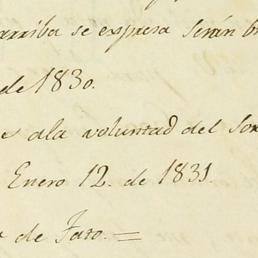 arriba se expresa serán
de 1830.
ala voluntad del
Enero 12. de 1831
de Faro.=